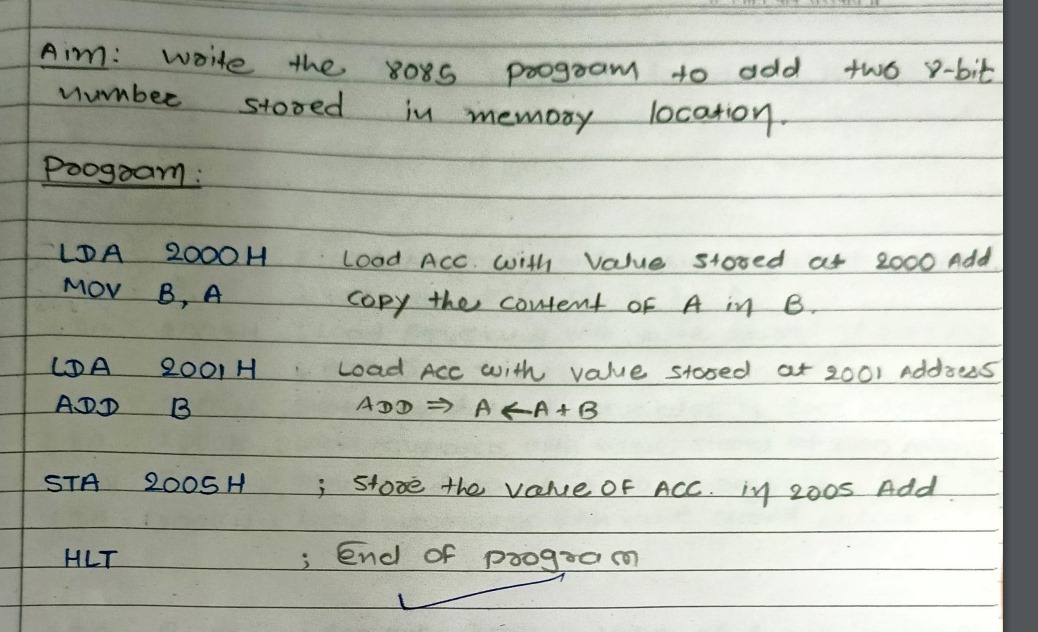 Aim: Write the 8085 program to add two 8-bit
number stored in memory location.
Program:
LDA 2000H Load Acc. with value stored at 2000 Add
MOV B, A copy the content of A in B.
LDA 2001H Load Acc with value stored at 2001 Address
ADD B ADD ⇒ A ← A + B
STA 2005H ; Store the value of Acc. in 2005 Add
HLT ; End of program